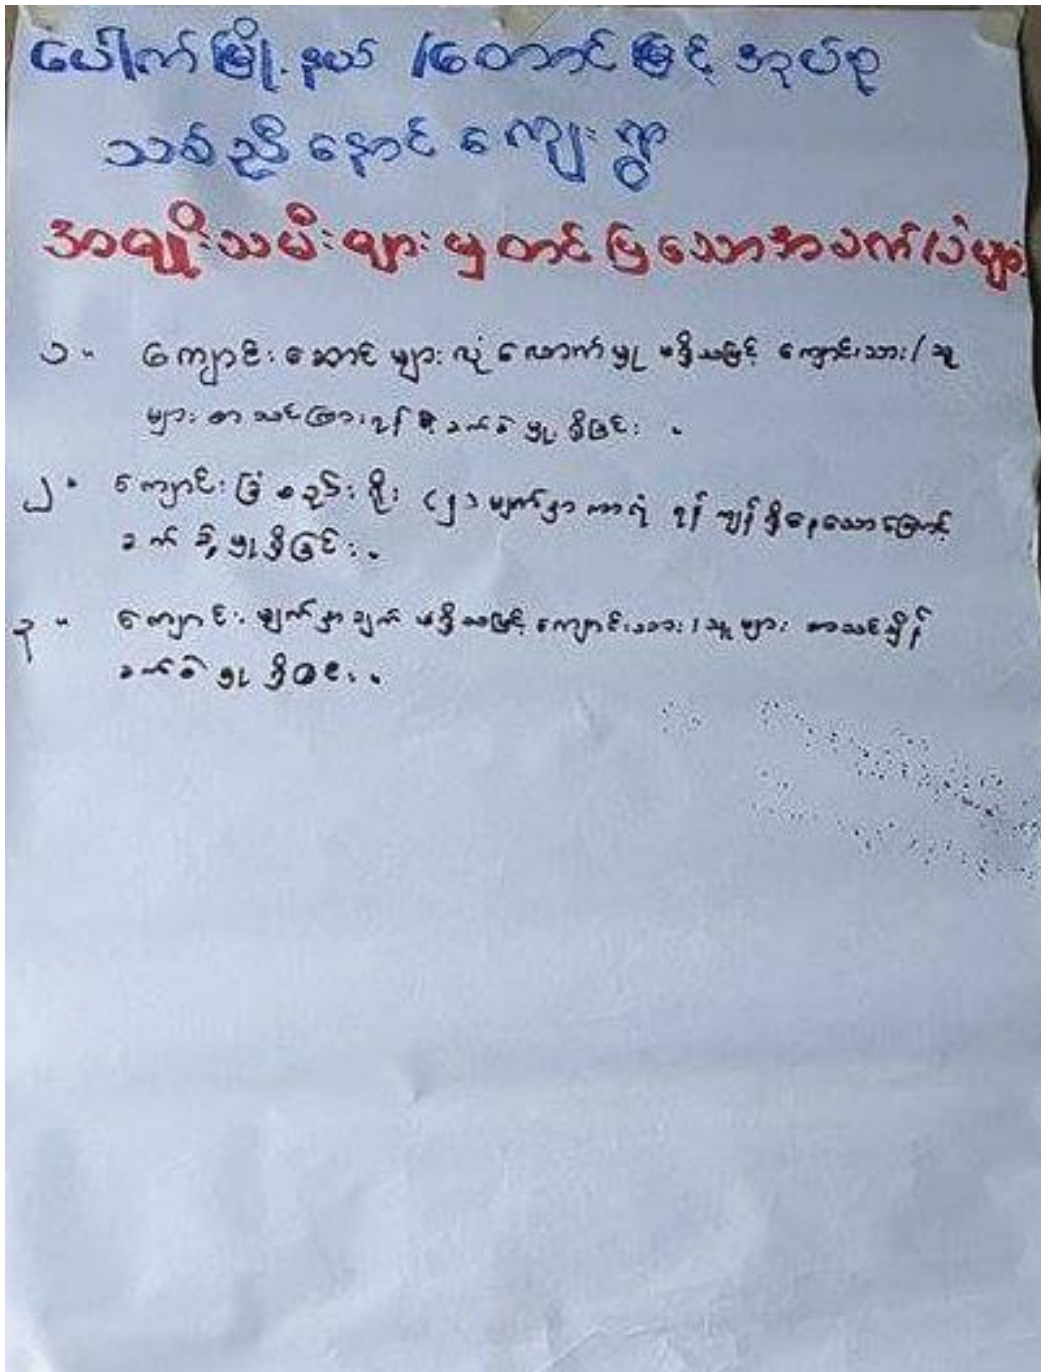 ပေါက်မြို့နယ် /တောင်မြင့်အုပ်စု
သစ်ညိုနောင်ကျေးရွာ
အမျိုးသမီးများမှတင်ပြသောအခက်အခဲများ
၁။ ကျောင်းဆောင်များလုံလောက်မှုမရှိသဖြင့် ကျောင်းသား/သူ
များ စာသင်ကြားရန် အခက်ခဲမှုရှိခြင်း ။
၂။ ကျောင်းခြံစည်းရိုး (၂) မျက်နှာကာရံရန်ကျန်ရှိနေသောကြောင့်
ခက်ခဲမှုရှိခြင်း။
၃။ ကျောင်းမျက်နှာချက်မရှိသဖြင့်ကျောင်းသား/သူများ စာသင်ချိန်
ခက်ခဲမှုရှိခြင်း။